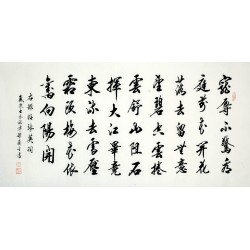 寵辱不驚看
庭前花開花
落去留無意
望碧空雲捲
雲舒山阻石
揮大江畢竟
東流去雪壓
霜欺梅花依
舊向陽開